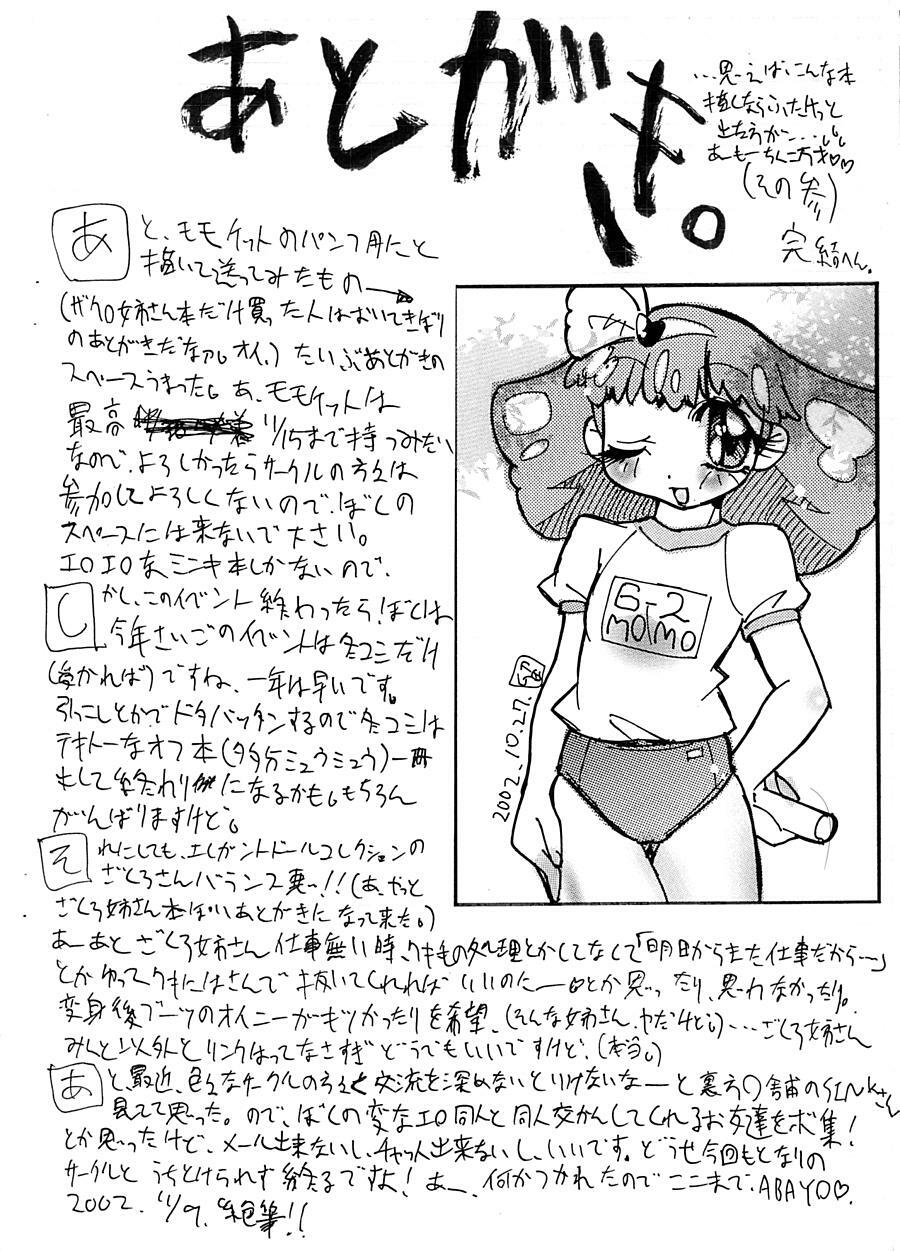 あとがき。
…思えばこんな本
描くならふたけっと
出ようか…
あーもーちんこ万才♡♡
(その参)
完結へん。
あと、モモケットのパンフ用にと
描いて送ってみたもの→
(ザクロ姉さん本だけ買った人はおいてきぼり
のあとがきだなァ。オイ。)たいぶあとがきの
スペースうまった。あ、モモケットは
最高 11/15まで持つみたい
なので、よろしかったらサークルの方々は
参加してよろしくないので、ぼくの
スペースには来ないで下さい。
エロエロな、ミンキ本しかないので、
しかし、このイベント終わったら、ぼくは
今年さいごのイベントは冬コミだけ
(受かれば)ですね、一年は早いです。
引っこしとかでドタバッタンするので冬コミは
テキトーなオフ本(多分ミュウミュウ)一冊
出して終わりになるかも。もちろん
がんばりますけど。
それにしても、エレガントドールコレクションの
ざくろさんバランス悪っ!!(あ、やっと
ざくろ姉さん本ぽいあとがきになって来た。)
あーあとざくろ姉さん仕事無い時、ワキ毛の処理とかしてなくて「明日からまた仕事だから…」
とかゆってワキにはさんで抜いてくれればいいのにーとか思ったり、思わなかったり。
変身後ブーツのオイニーがキツかったりを希望、(そんな姉さん、ヤだけど)…ざくろ姉さん
みんと以外とリンクはってなさすぎどうでもいいですけど、(本当。)
あと、最近、色々なサークルの方々と交流を深めないといけないなーと裏方〇舗のSINKさん
見てて思った。ので、ぼくの変なエロ同人と同人交かんしてくれるお友達をボ集!
とか思ったけど、メール出来ないし、チャット出来ないし、いいです。どうせ今回もとなりの
サークルとうちとけられず終るですよ!あー、何かつかれたのでここまで、ABAYO♡.
2002. 11/9. 絶筆!!
6-2
MOMO
2002.10.27.